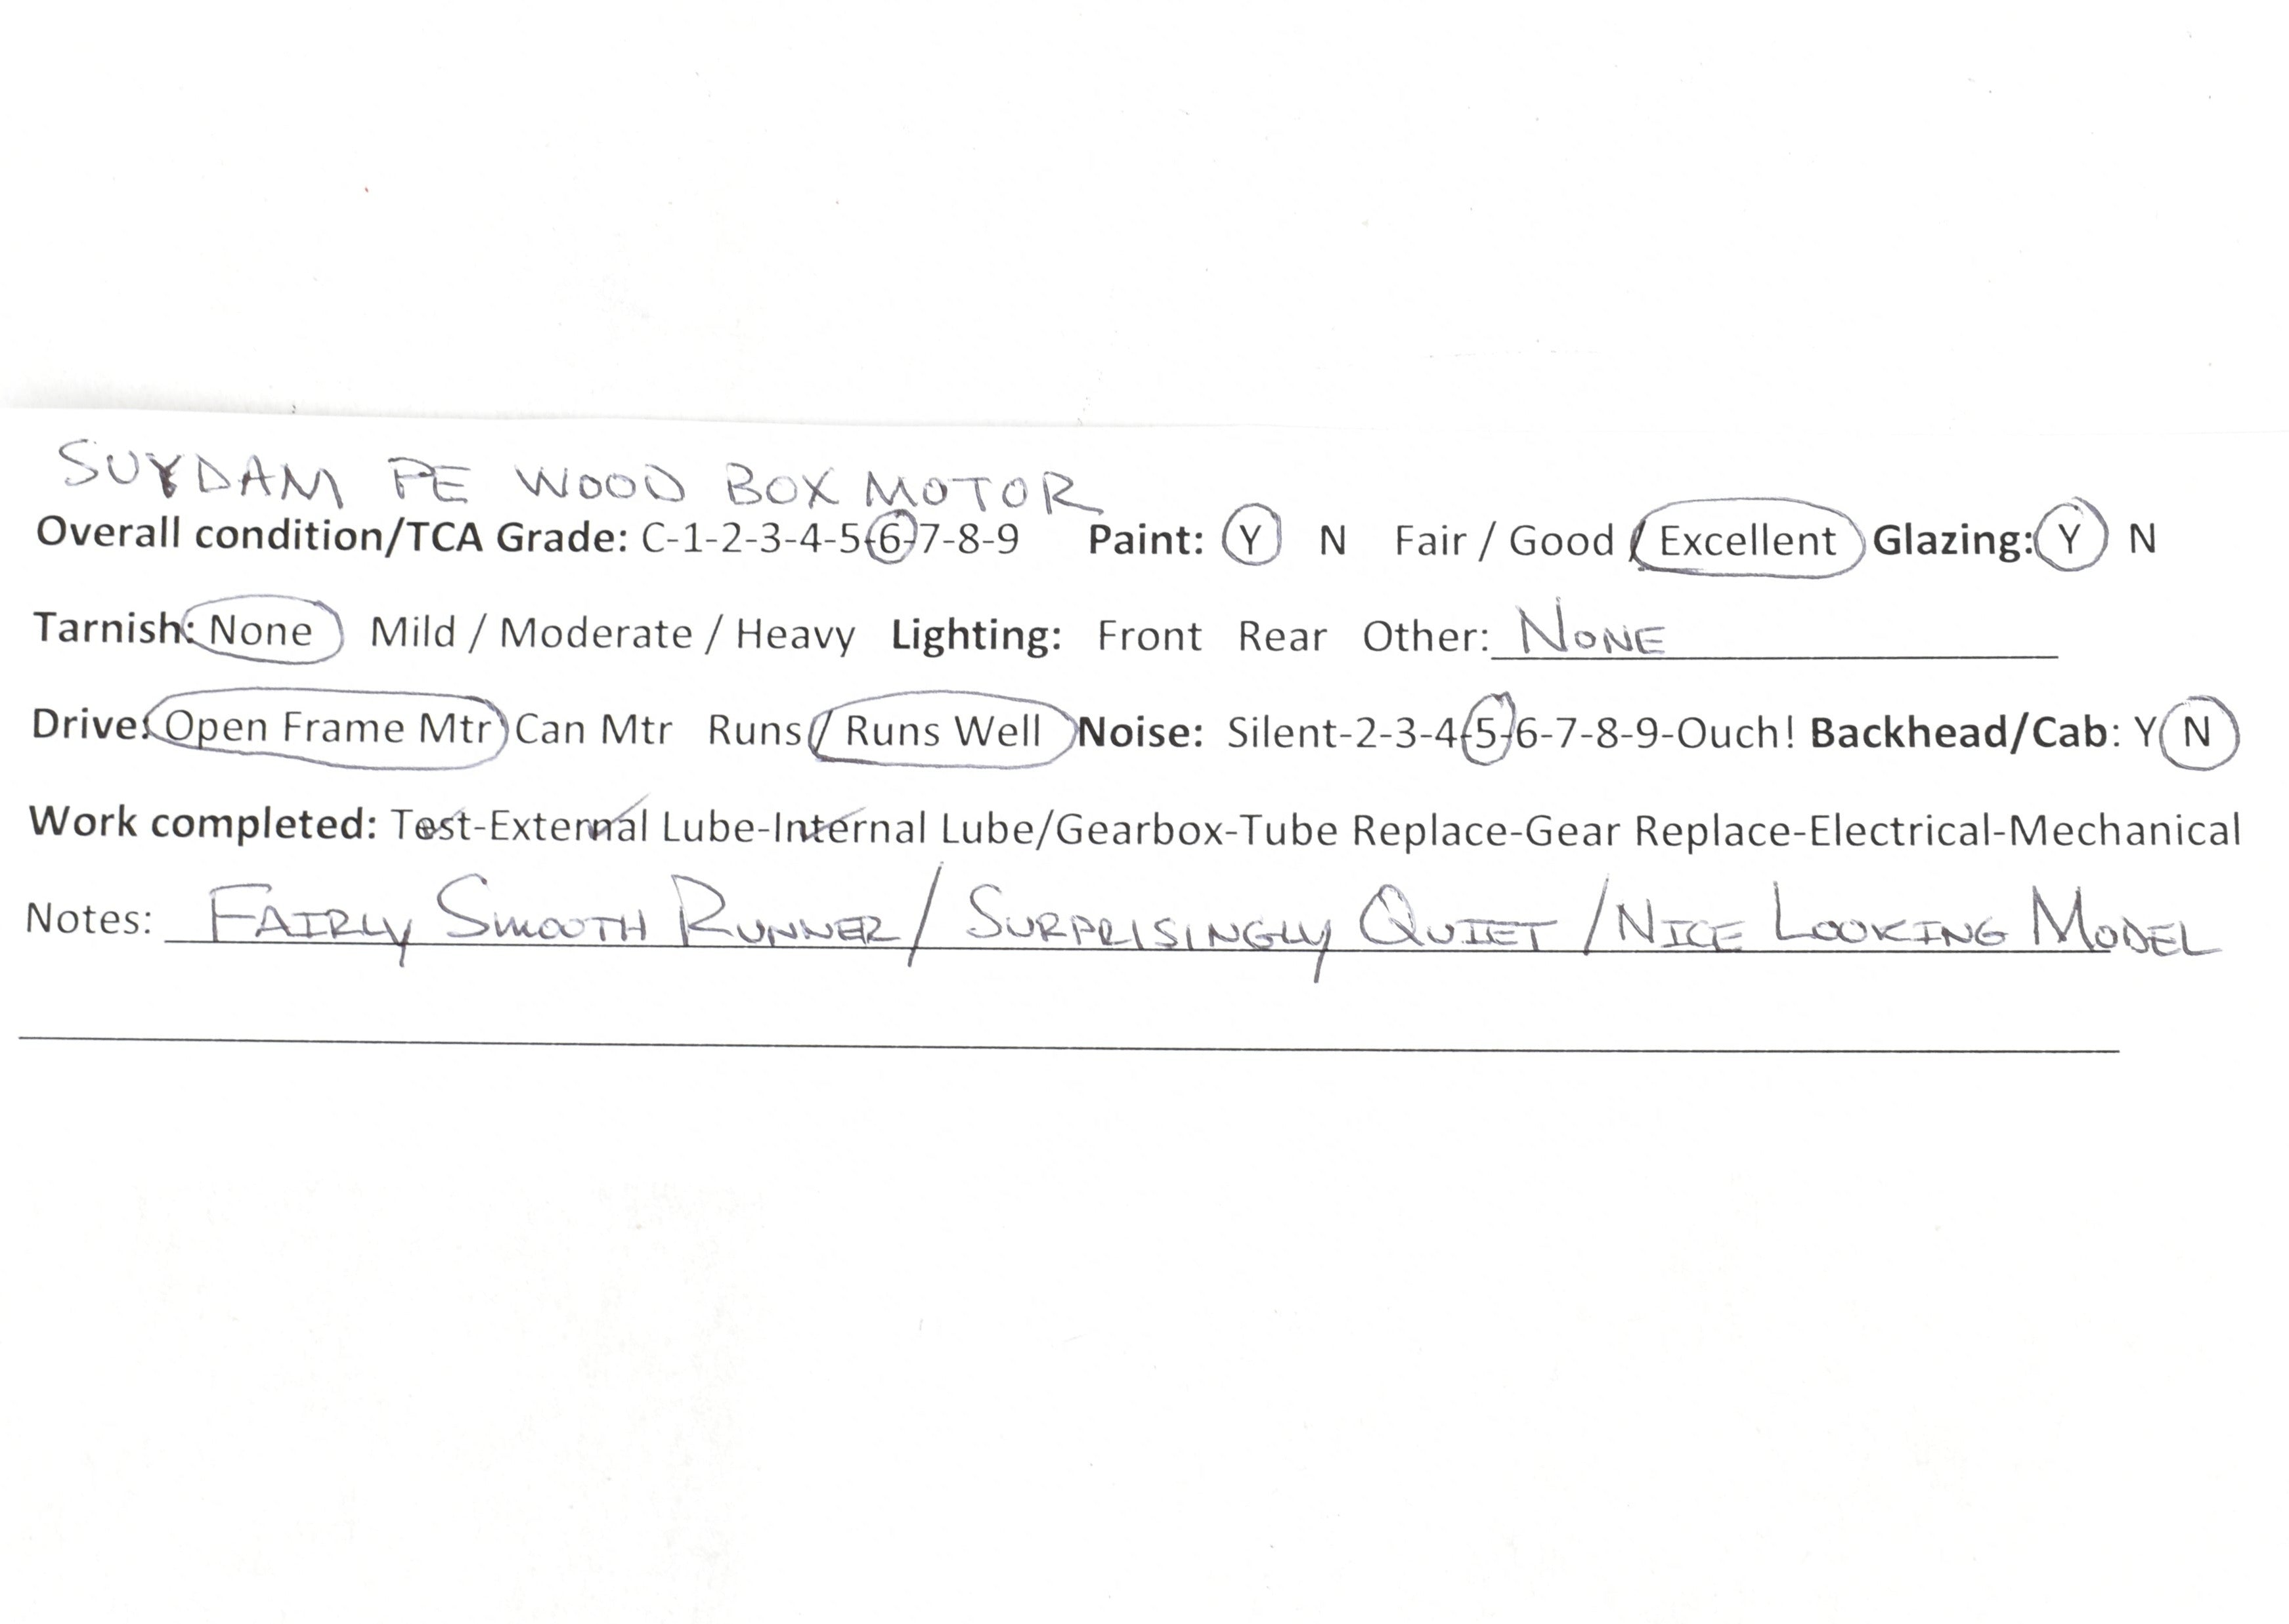 SUYDAM PE WOOD BOX MOTOR
Overall condition/TCA Grade: C-1-2-3-4-5-6-7-8-9 Paint: Y N Fair / Good / Excellent Glazing: Y N
Tarnish: None Mild / Moderate / Heavy Lighting: Front Rear Other: NONE
Drive: Open Frame Mtr Can Mtr Runs / Runs Well Noise: Silent-2-3-4-5-6-7-8-9-Ouch! Backhead/Cab: Y N
Work completed: Test-External Lube-Internal Lube/Gearbox-Tube Replace-Gear Replace-Electrical-Mechanical
Notes: FAIRLY SMOOTH RUNNER / SURPRISINGLY QUIET / NICE LOOKING MODEL